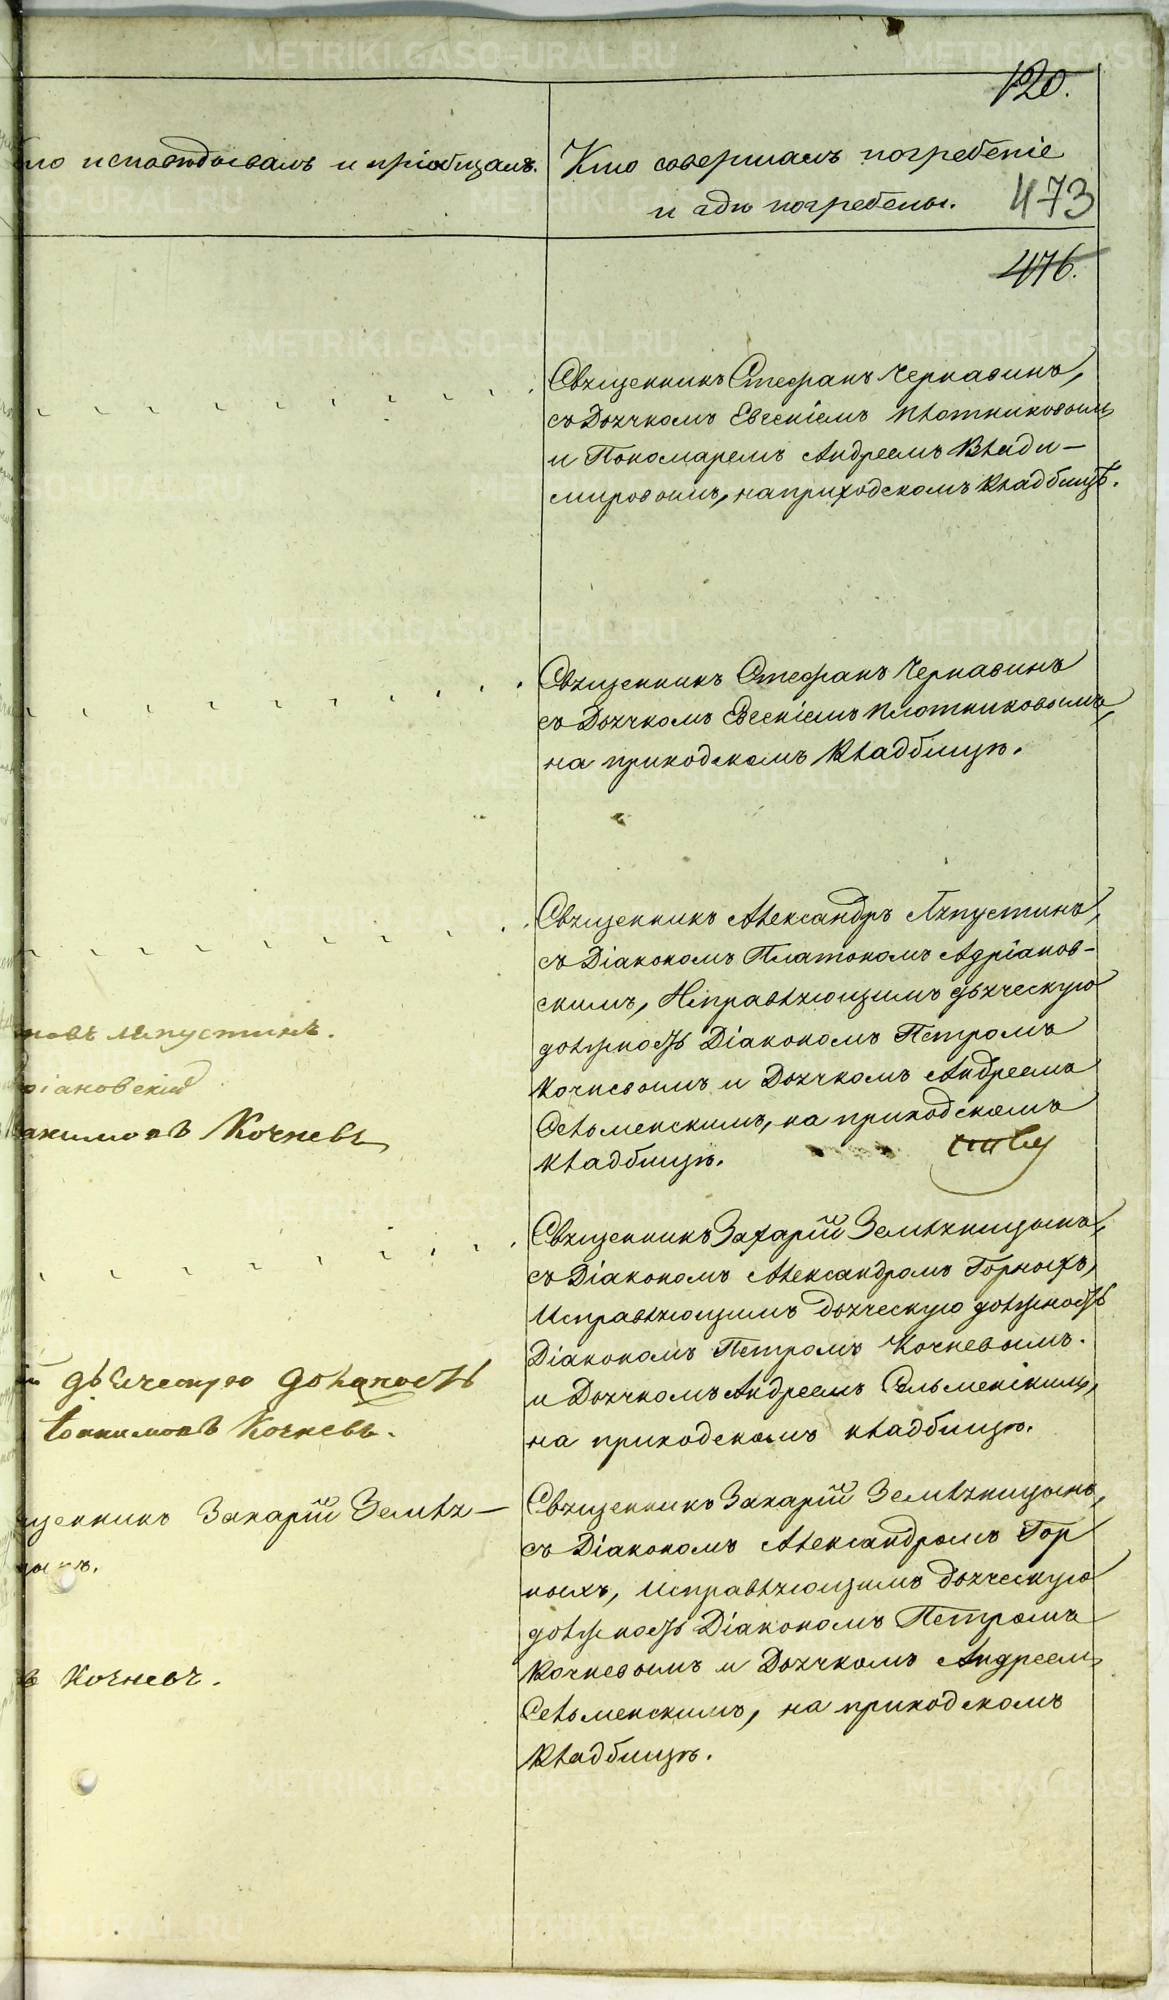 120.
исповѣдывалъ и пріобщалъ.
Кто совершалъ погребеніе
и гдѣ погребены.
473
476.
Священникъ Стефанъ Чернавинъ,
съ Дьячкомъ Евсеніемъ Плотниковымъ
и Пономаремъ Андреемъ Влади-
мировымъ, на приходскомъ кладбищѣ.
Священникъ Стефанъ Чернавинъ
съ Дьячкомъ Евсеніемъ Плотниковымъ,
на приходскомъ кладбищѣ.
Священникъ Александръ Ляпустинъ,
съ Діакономъ Платономъ Адріанов-
скимъ, Исправляющимъ дьяческую
должность Діакономъ Петромъ
Кочневымъ и Дьячкомъ Андреемъ
Сельменскимъ, на приходскомъ
кладбищѣ.
новъ Ляпустинъ.
ріановскій
акимовъ Кочневъ
Священникъ Захарій Земляницынъ,
съ Діакономъ Александромъ Горныхъ,
Исправляющимъ дьяческую должность
Діакономъ Петромъ Кочневымъ.
и Дьячкомъ Андреемъ Сельменскимъ,
на приходскомъ кладбищѣ.
й дьяческую должность
Іоакимовъ Кочневъ.
Священникъ Захарій Земляницынъ,
съ Діакономъ Александромъ Гор
ныхъ, Исправляющимъ дьяческую
должность Діакономъ Петромъ
Кочневымъ и Дьячкомъ Андреемъ
Сельменскимъ, на приходскомъ
кладбищѣ.
щенникъ Захарій Земля-
въ Кочневъ.